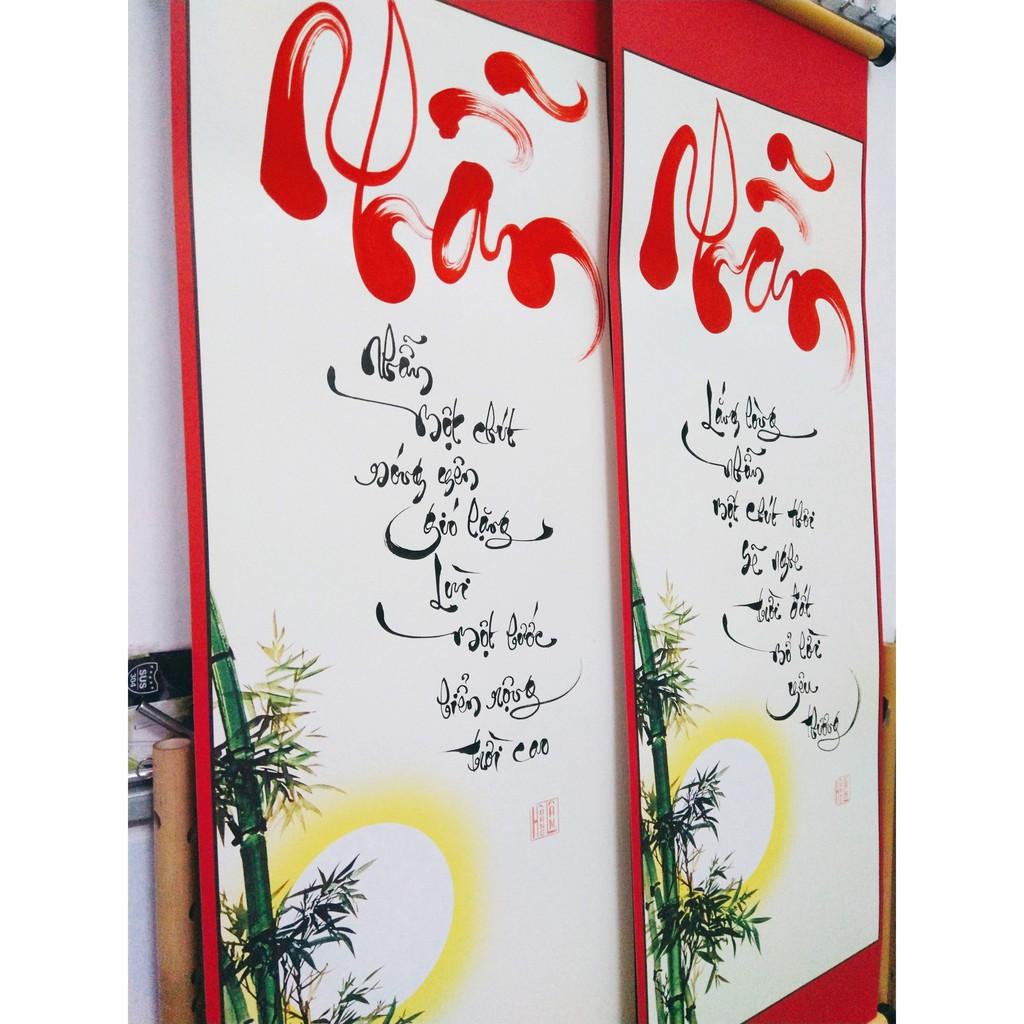 Nhẫn
Nhẫn
một chút
sóng yên
gió lặng
Lùi
một bước
biển rộng
trời cao
Nhẫn
Lắng lòng
nhẫn
một chút thôi
sẽ nghe
trời đất
nở lời
yêu
thương
SUS
304